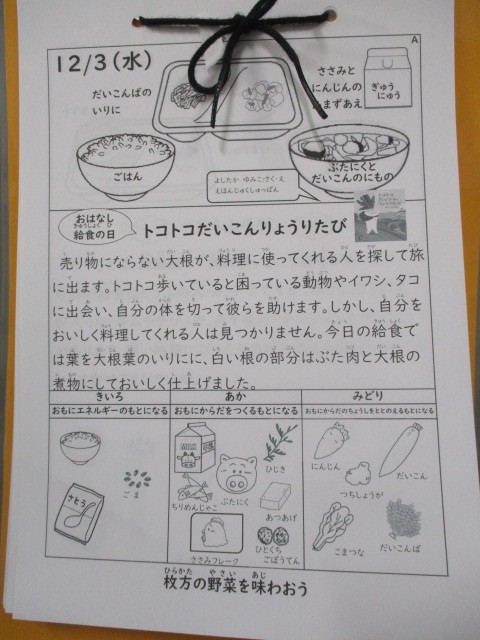 A
12/3(水)
だいこんばの
いりに
ささみと
にんじんの
ぎゅう
にゅう
ごはん
よしだか ゆみこ:さく・え
えほんじゅくしゅっぱん
ぶたにくと
だいこんのにもの
おはなし
給食の日
トコトコだいこんりょうりたび
売り物にならない大根が、料理に使ってくれる人を探して旅
に出ます。トコトコ歩いていると困っている動物やイワシ、タコ
に出会い、自分の体を切って彼らを助けます。しかし、自分を
おいしく料理してくれる人は見つかりません。今日の給食で
は葉を大根葉のいりにに、白い根の部分はぶた肉と大根の
煮物にしておいしく仕上げました。
きいろ
おもにエネルギーのもとになる
あか
おもにからだをつくるもとになる
みどり
おもにからだのちょうしをととのえるもとになる
さとう
ごま
MILK
ひじき
ちりめんじゃこ
ぶたにく
あつあげ
ささみフレーク
ひとくち
ごぼうてん
にんじん
だいこん
つちしょうが
こまつな
だいこんば
枚方の野菜を味わおう